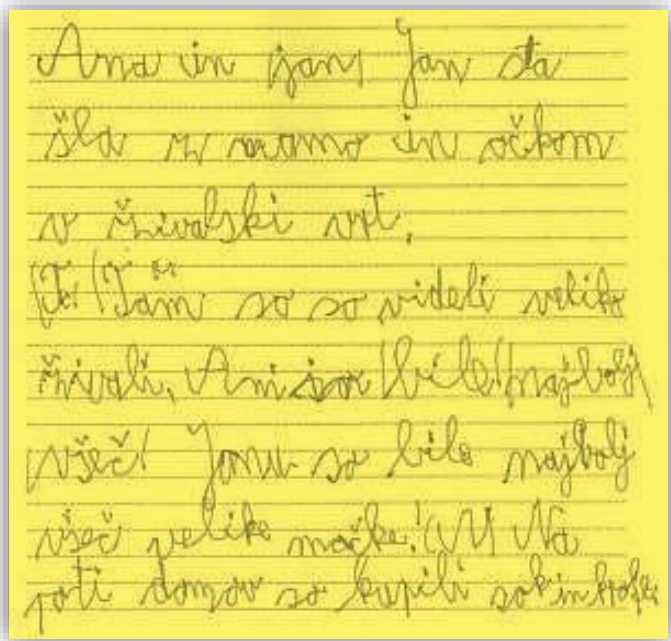 Ana in (jan) Jan sta
šla z mamo in očkom
v živalski vrt.
(Te) (Tam so so videli veliko
živali. Ani so (bile) (najbolj)
(všeč) Janu so bile najbolj
všeč velike mačke. (M) Na
poti domov so kupili sok in krofe